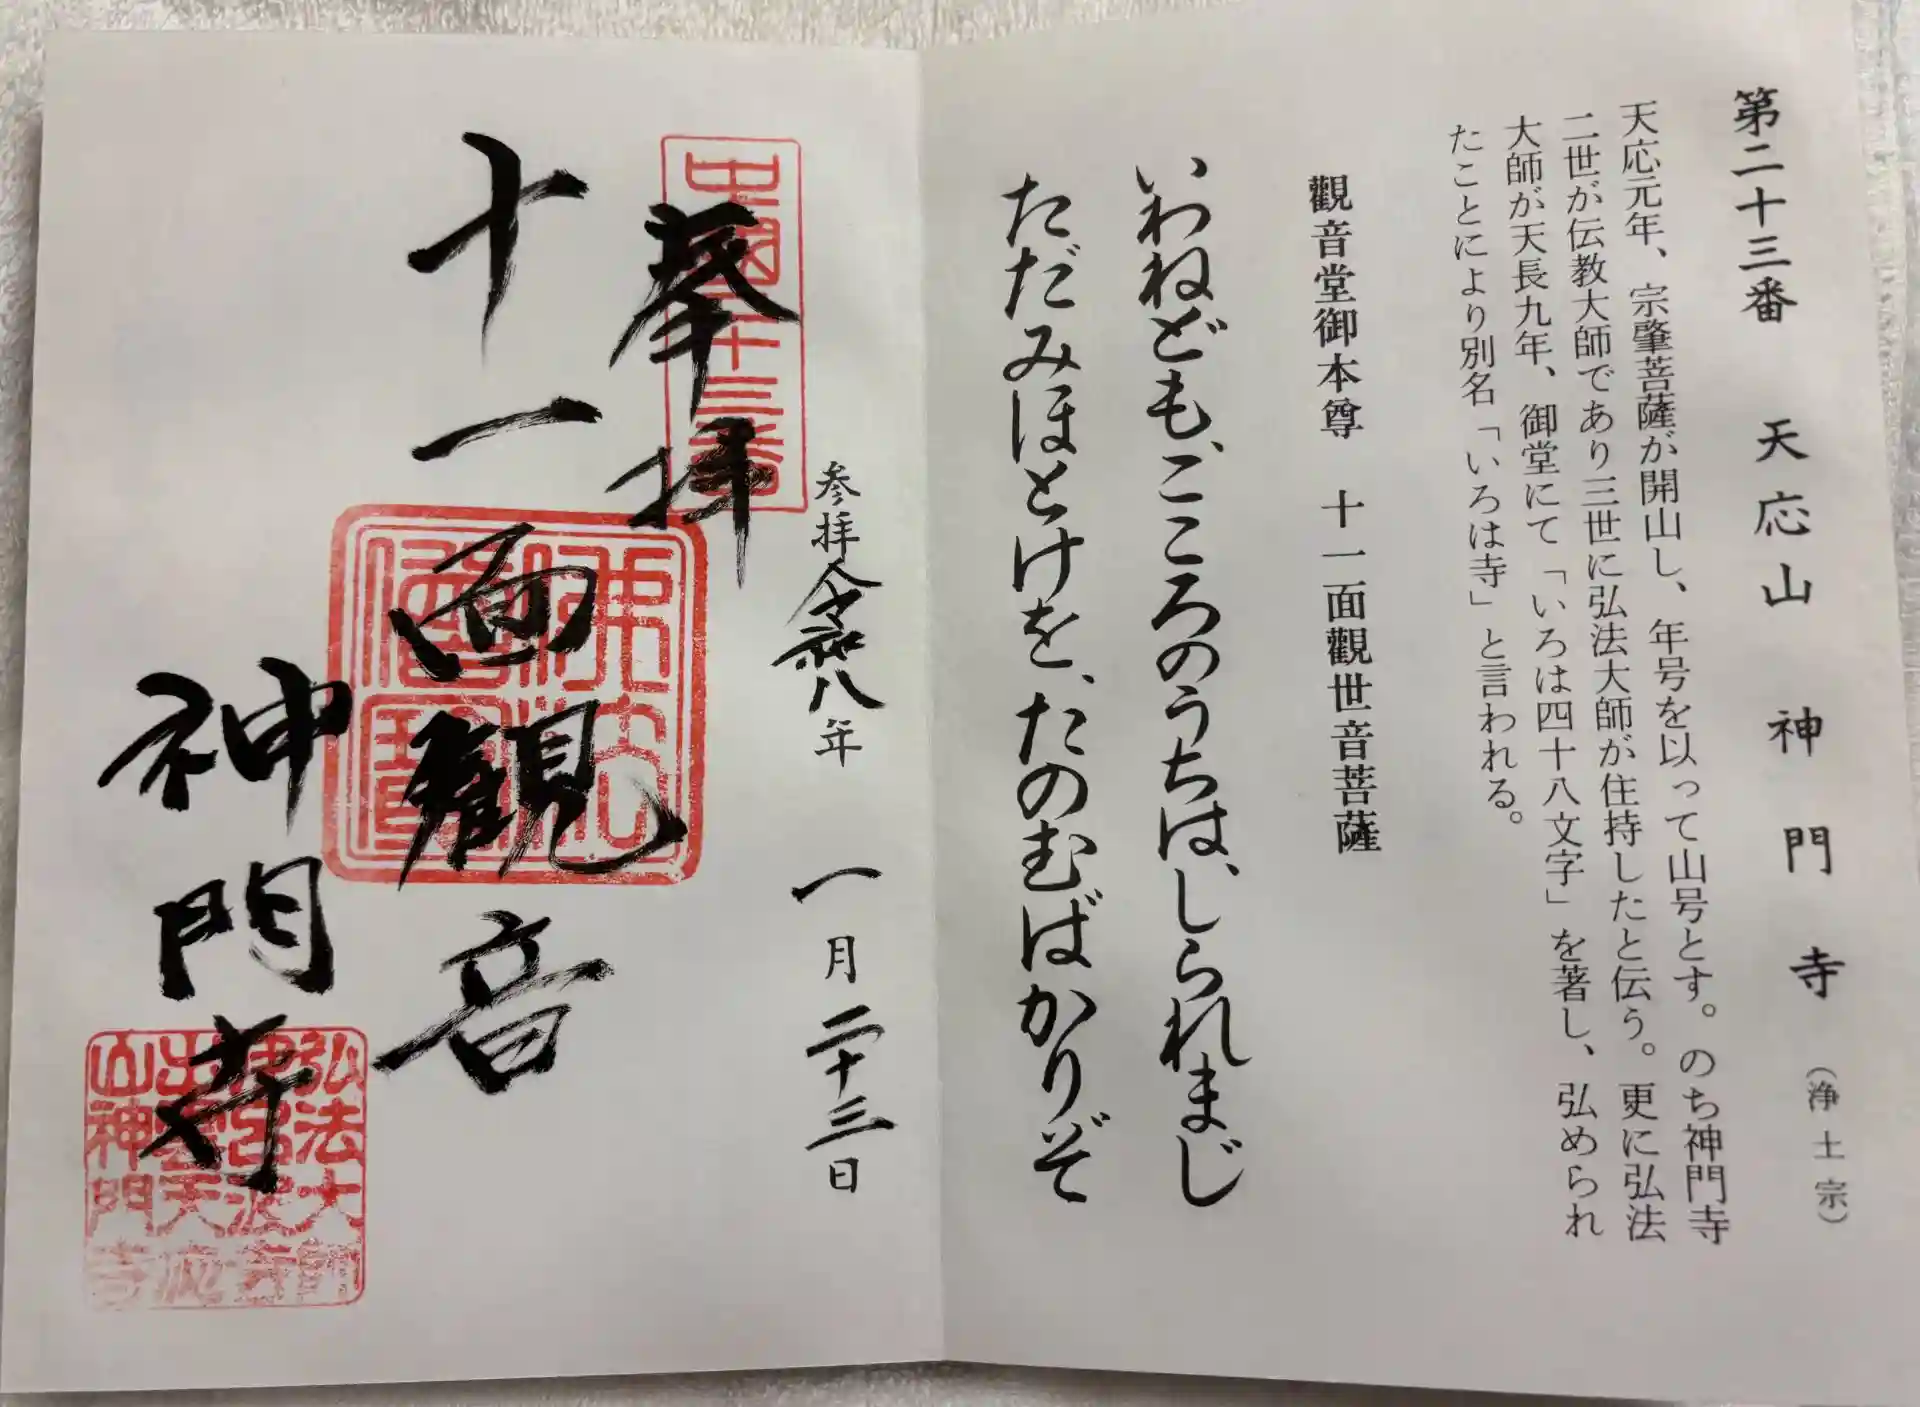 第二十三番　天応山　神門寺（浄土宗）
天応元年、宗肇菩薩が開山し、年号を以って山号とす。のち神門寺
二世が伝教大師であり三世に弘法大師が住持したと伝う。更に弘法
大師が天長九年、御堂にて「いろは四十八文字」を著し、弘められ
たことにより別名「いろは寺」と言われる。
觀音堂御本尊　十一面觀世音菩薩
いわねども、こころのうちは、しられまじ
ただみほとけを、たのむばかりぞ
参拝令和八年　一月二十三日
奉拝
中国二十三番
十一面観音
佛法僧寶
神門寺
弘法大師
山神門寺